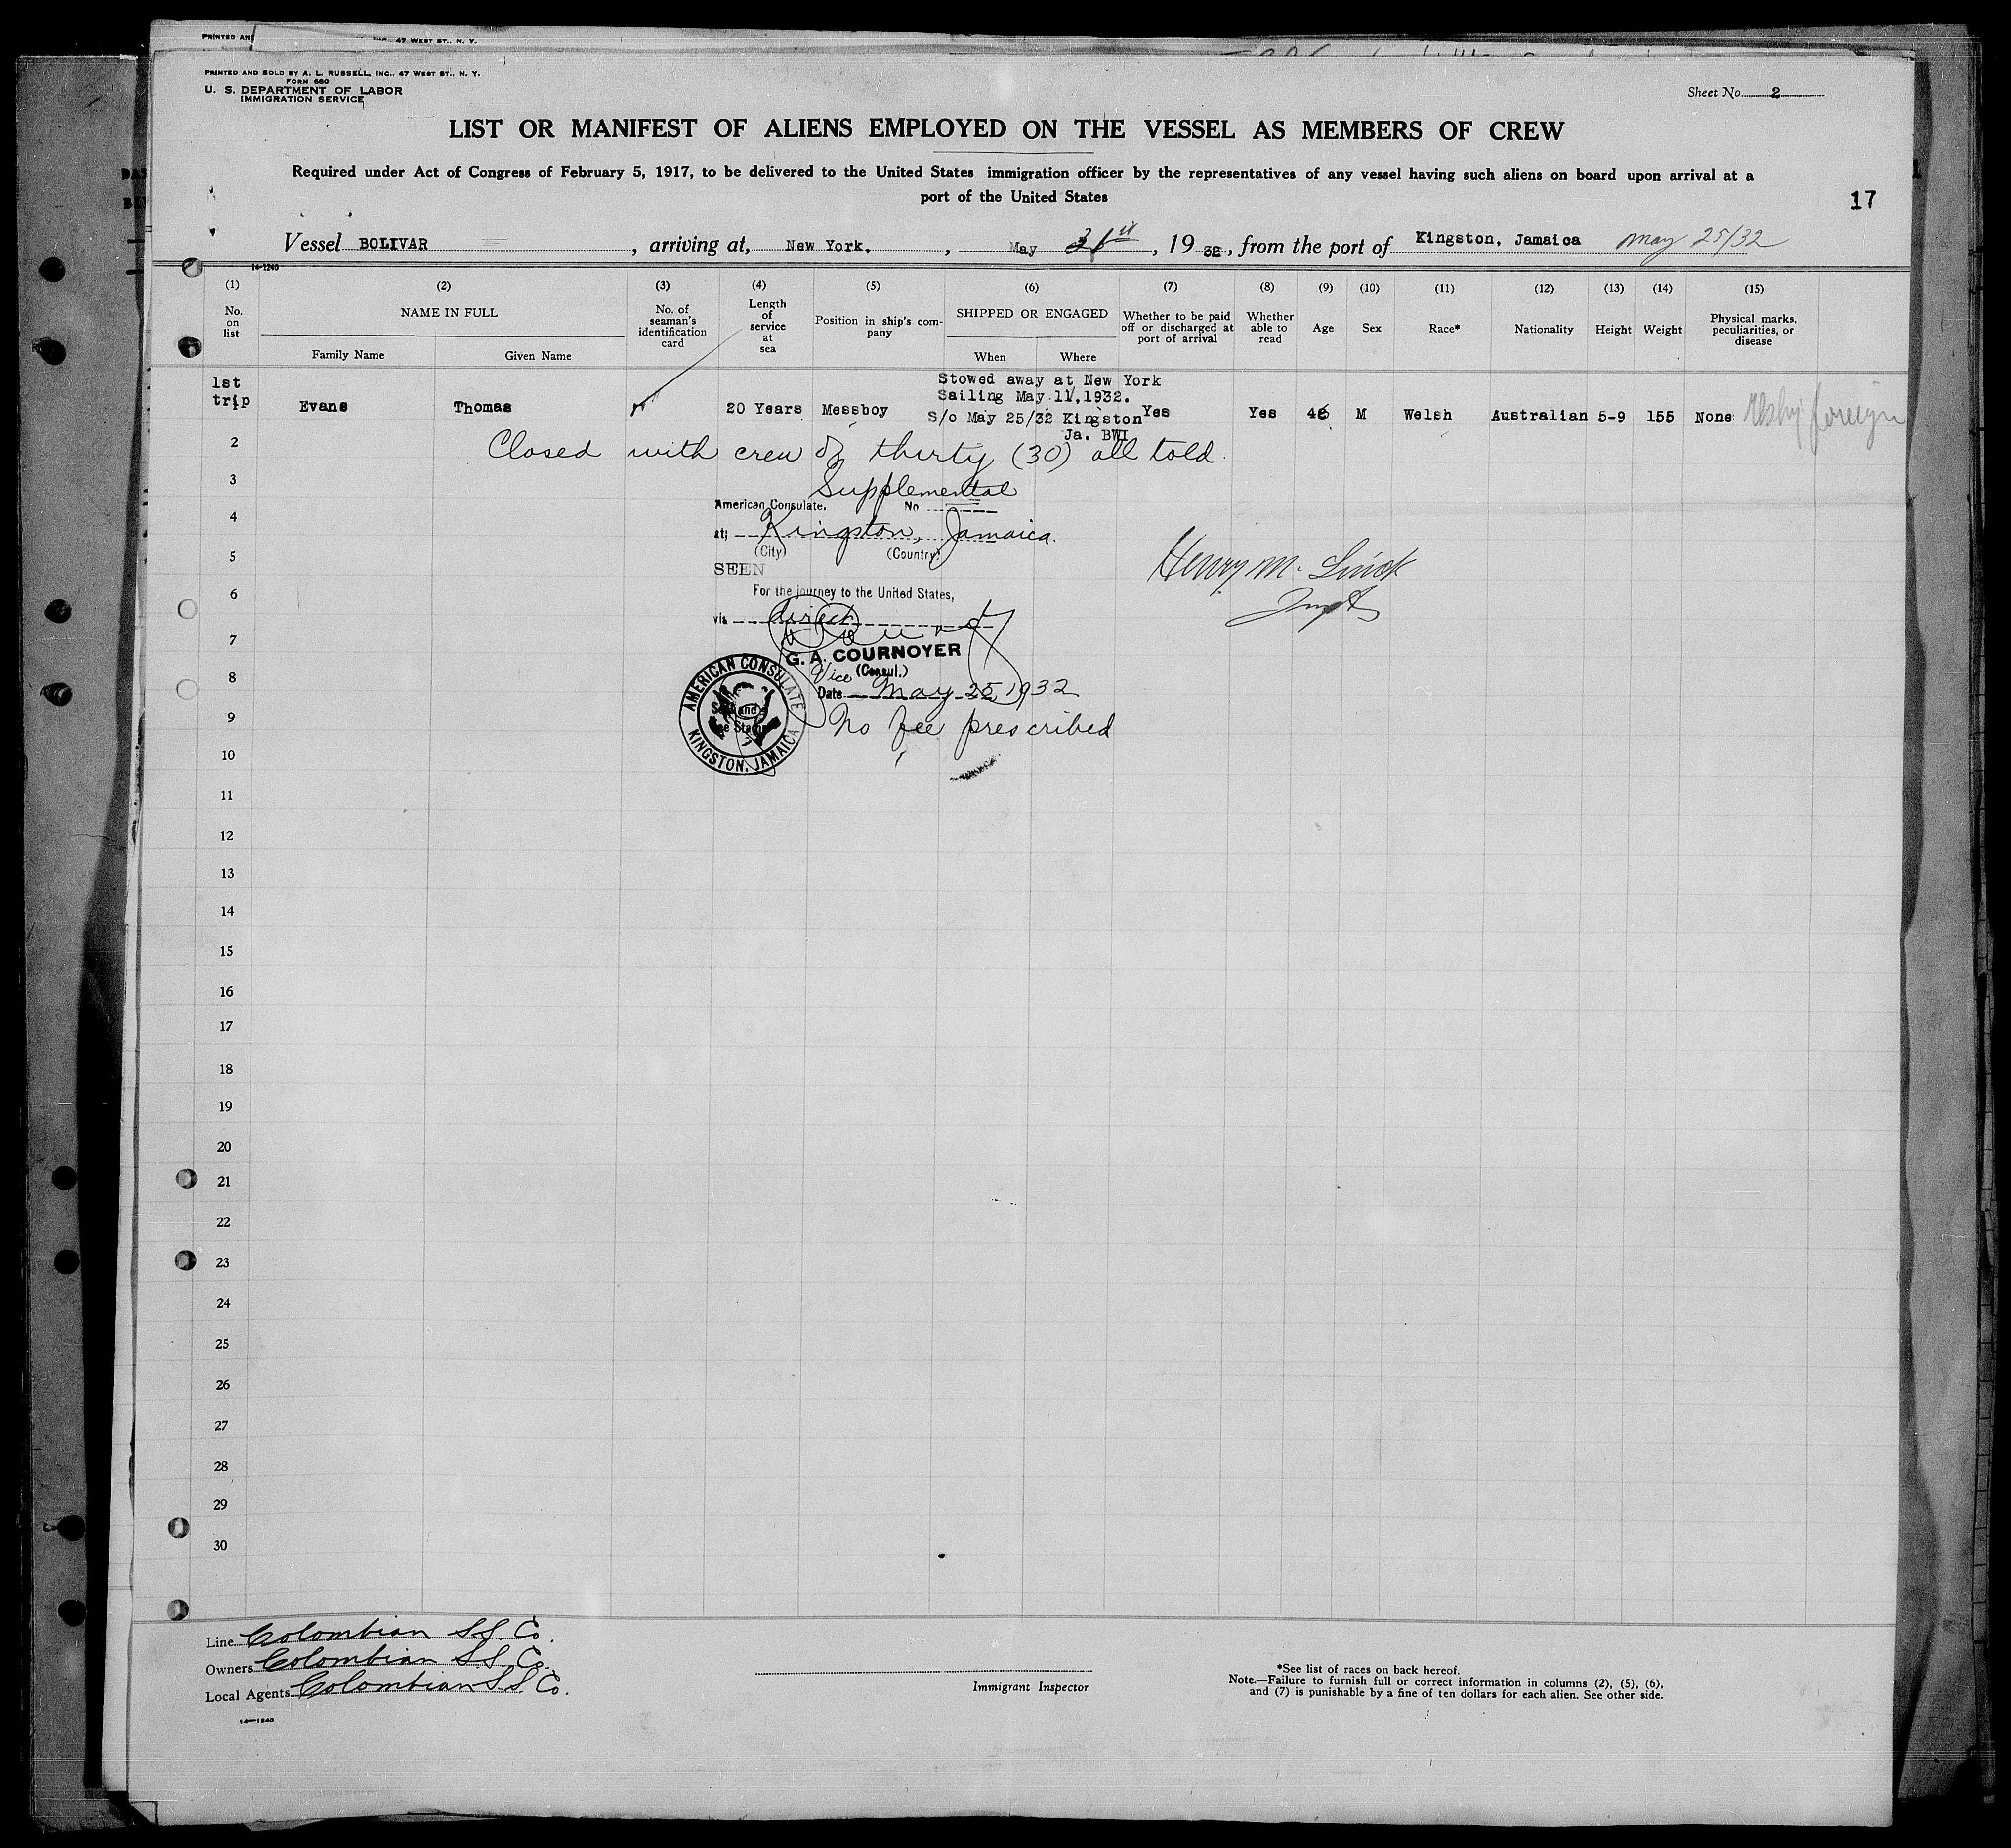 PRINTED AND 47 WEST ST., N. Y.
PRINTED AND SOLD BY A. L. RUSSELL, INC., 47 WEST ST., N. Y.
FORM 680
U. S. DEPARTMENT OF LABOR
IMMIGRATION SERVICE
Sheet No. 2
LIST OR MANIFEST OF ALIENS EMPLOYED ON THE VESSEL AS MEMBERS OF CREW
Required under Act of Congress of February 5, 1917, to be delivered to the United States immigration officer by the representatives of any vessel having such aliens on board upon arrival at a
port of the United States
17
Vessel BOLIVAR, arriving at, New York, , May 31st, 1932, from the port of Kingston, Jamaica May 25/32
14-1240
(1) (2) (3) (4) (5) (6) (7) (8) (9) (10) (11) (12) (13) (14) (15)
No. on list
NAME IN FULL
Family Name Given Name
No. of seaman's identification card
Length of service at sea
Position in ship's company
SHIPPED OR ENGAGED
When Where
Whether to be paid off or discharged at port of arrival
Whether able to read
Age
Sex
Race*
Nationality
Height
Weight
Physical marks, peculiarities, or disease
1st trip
1 Evans Thomas 20 Years Messboy
Stowed away at New York
Sailing May 11, 1932.
S/o May 25/32 Kingston
Ja. BWI
Yes Yes 46 M Welsh Australian 5-9 155 None foreign
2 Closed with crew of thirty (30) all told.
3 Supplemental
American Consulate, No
4 at; Kingston, Jamaica.
(City) (Country)
5
SEEN
Henry M. Linck
Inspt
6
For the journey to the United States,
via direct
7
G. A. COURNOYER
Vice (Consul.)
8
Date May 25, 1932
AMERICAN CONSULATE
KINGSTON, JAMAICA
Seal and
Fee Stamp
9
No fee prescribed
10
11
12
13
14
15
16
17
18
19
20
21
22
23
24
25
26
27
28
29
30
Line Colombian S.S. Co.
Owners Colombian S.S. Co.
Local Agents Colombian S.S. Co.
14-1240
Immigrant Inspector
*See list of races on back hereof.
Note.—Failure to furnish full or correct information in columns (2), (5), (6),
and (7) is punishable by a fine of ten dollars for each alien. See other side.